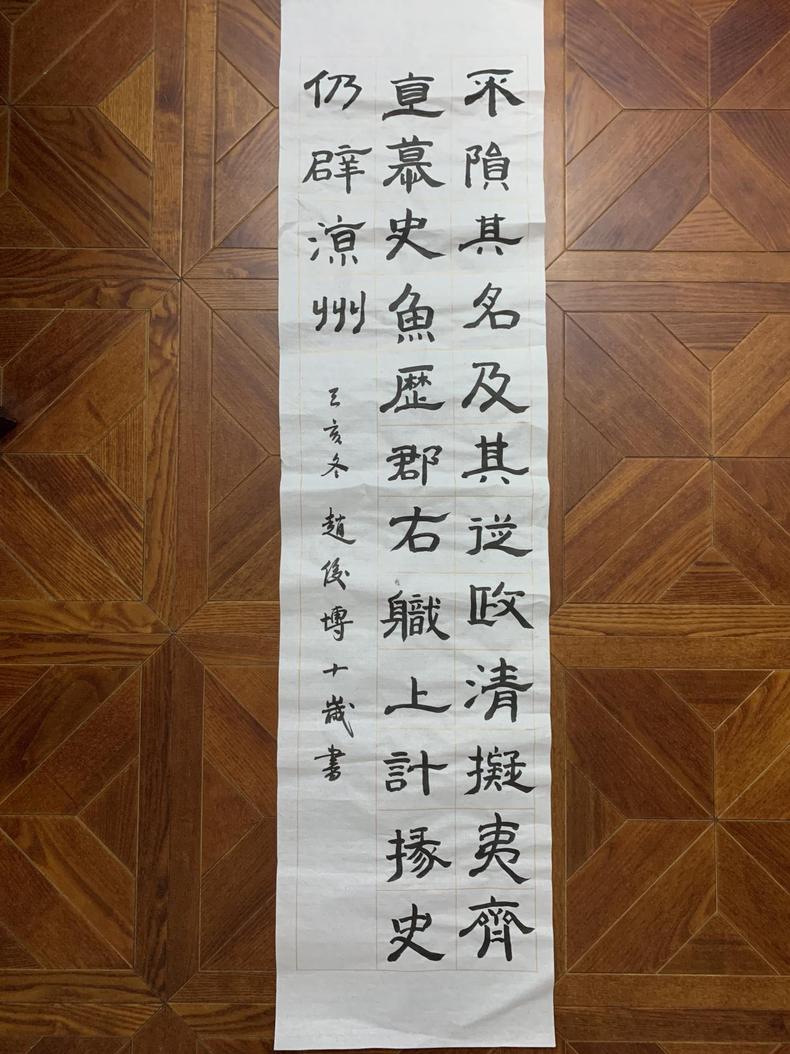 不隕其名及其從政清擬夷齊
直慕史魚歷郡右職上計掾史
仍辟涼州
己亥冬 趙俊博十歲書